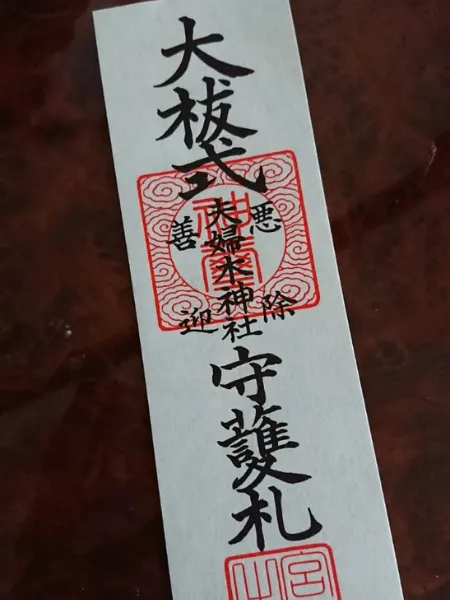 大祓式
悪除
夫婦木神社
善迎
守護札
神璽